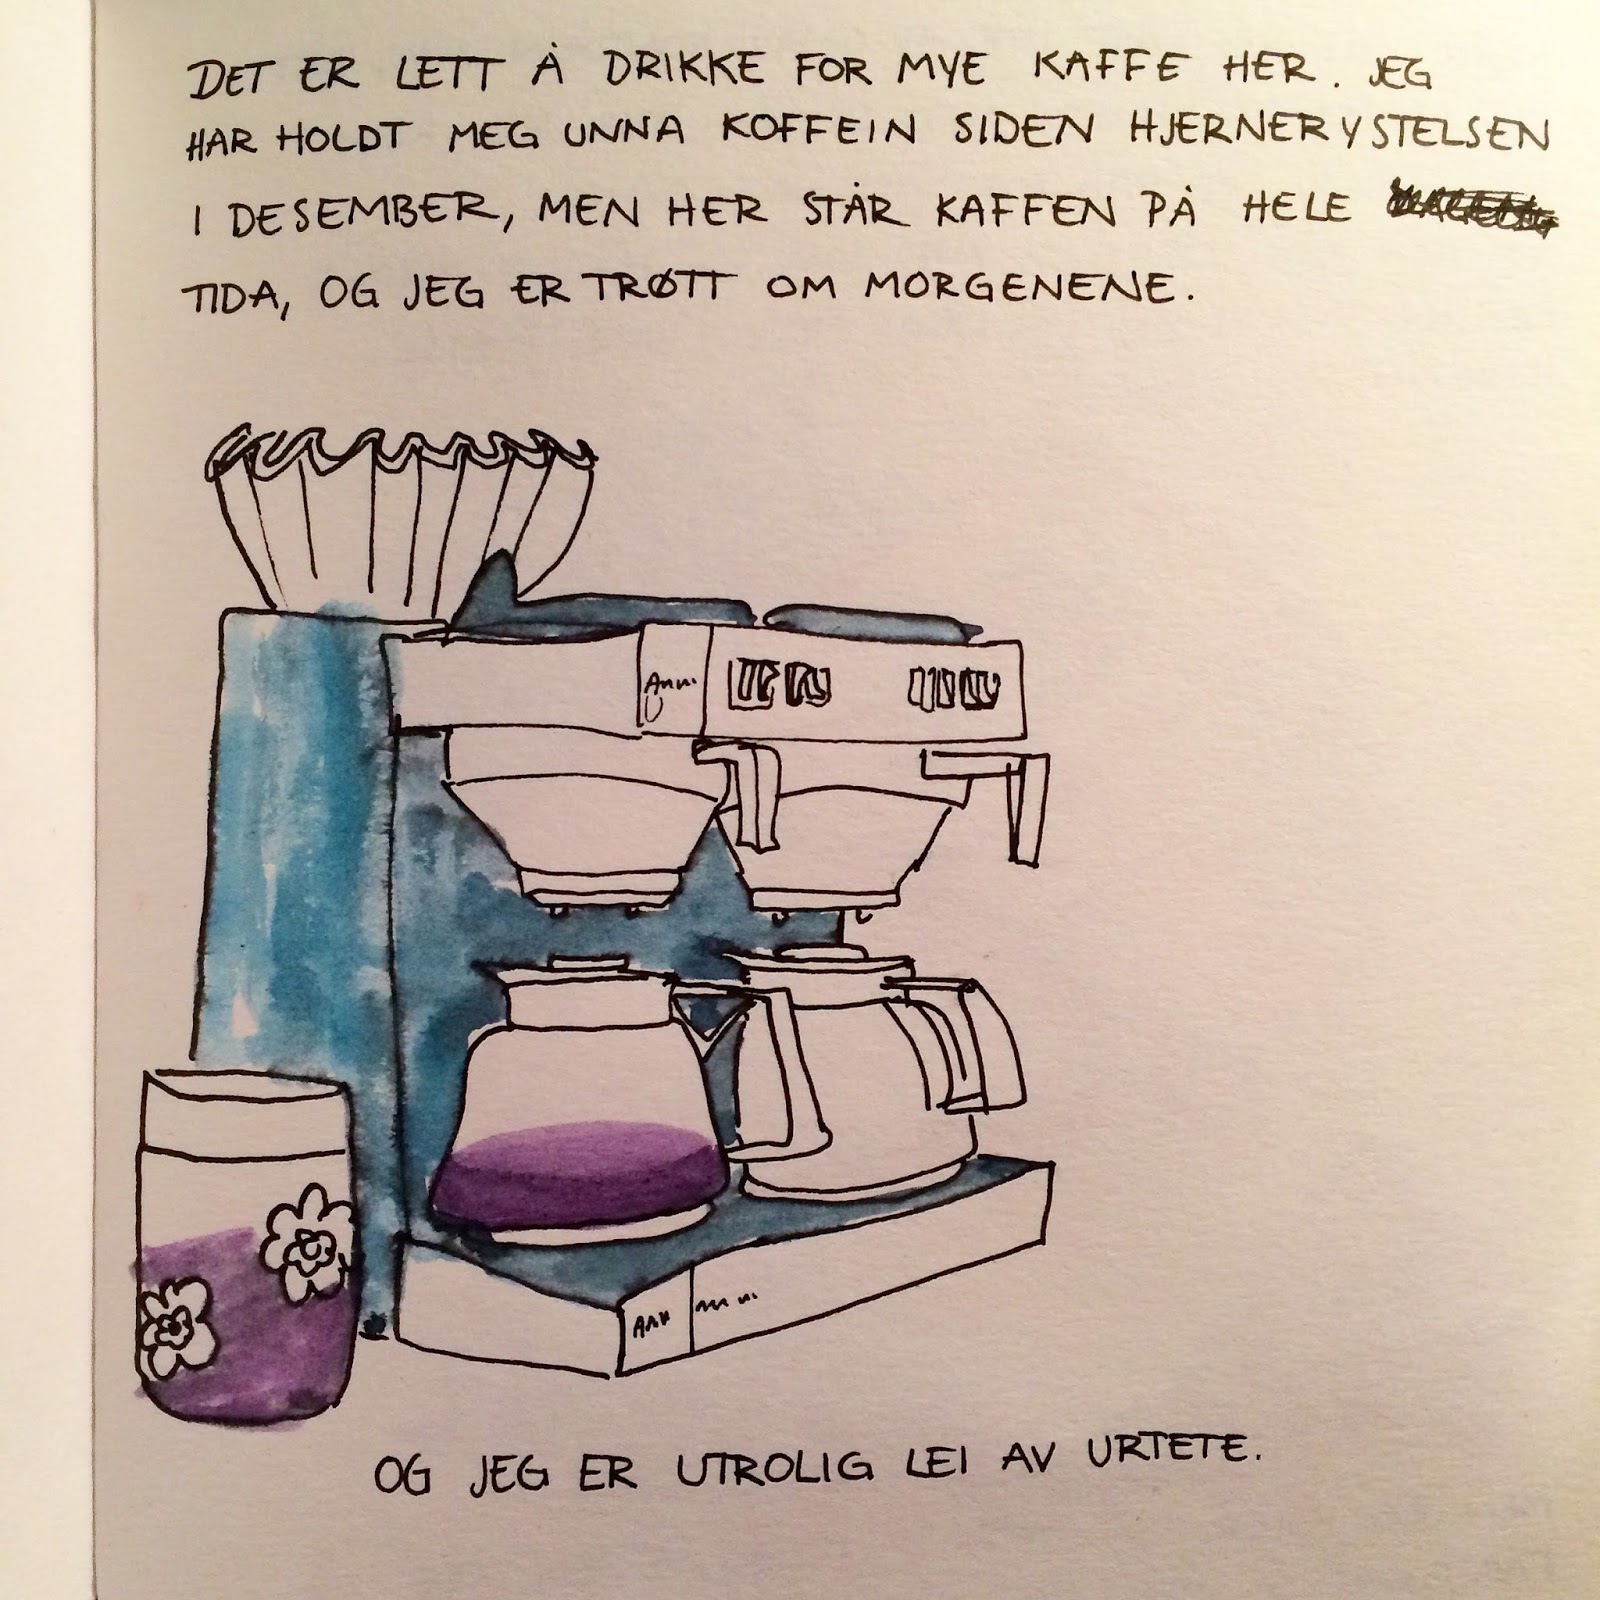 DET ER LETT Å DRIKKE FOR MYE KAFFE HER. JEG
HAR HOLDT MEG UNNA KOFFEIN SIDEN HJERNERYSTELSEN
I DESEMBER, MEN HER STÅR KAFFEN PÅ HELE
TIDA, OG JEG ER TRØTT OM MORGENENE.
OG JEG ER UTROLIG LEI AV URTETE.